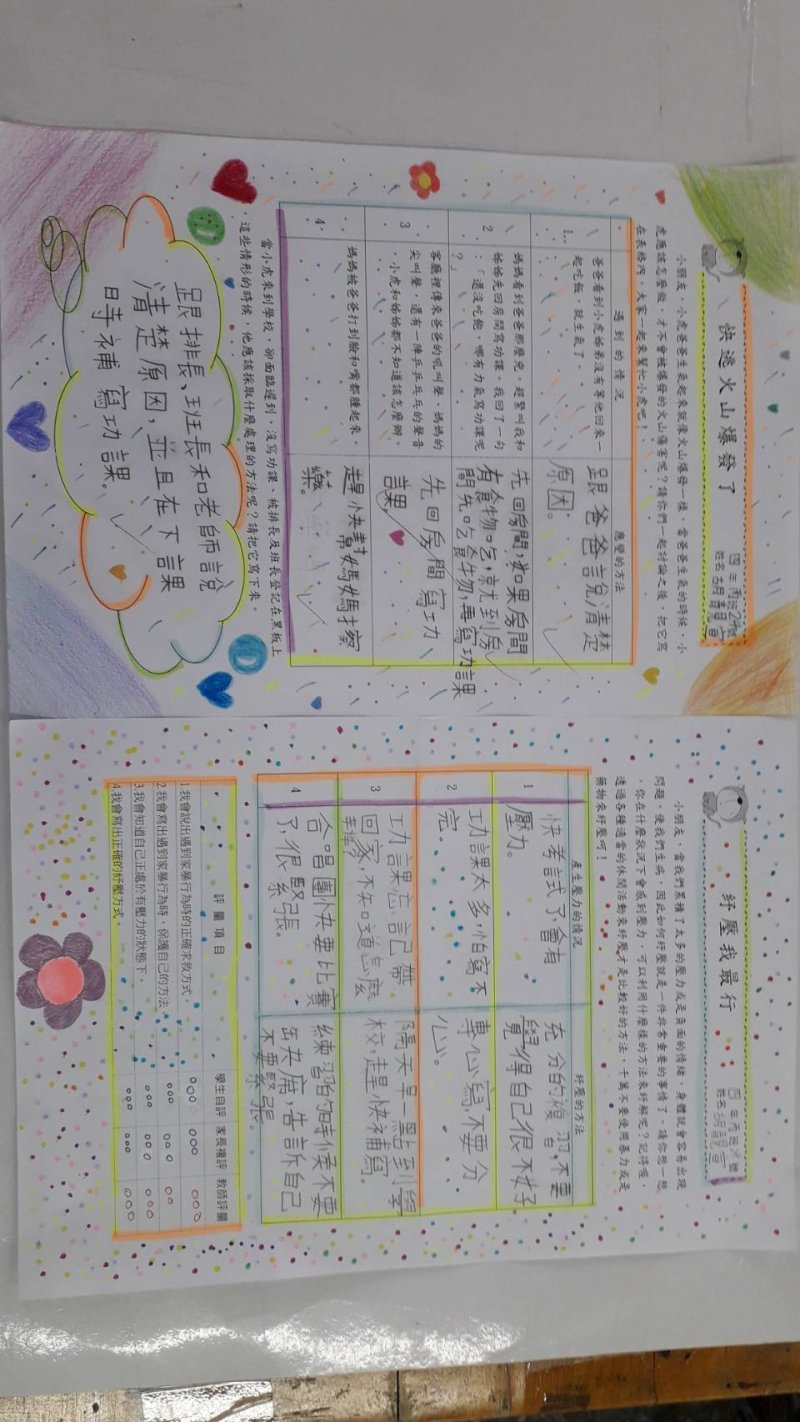 快逃火山爆發了
四年丙班24號
姓名
小朋友,小虎爸爸生氣起來就像火山爆發一樣,當爸爸生氣的時候,小
虎應該怎麼做,才不會被爆發的火山傷害呢?請你們一起討論之後,把它寫
在表格內,大家一起來幫忙小虎吧!
遇到的情況
應變的方法
1.
爸爸看到小虎姊弟沒有等他回來一
起吃飯,就生氣了。
跟爸爸說清楚
原因。
2.
媽媽看到爸爸那麼兇,趕緊叫我和
姊姊先回房間寫功課。我回了一句
:「還沒吃飽,哪有力氣寫功課呢
?」
先回房間,如果房間
有食物吃,就先到房
間先吃食物,再寫功課
3
客廳裡傳來爸爸的吼叫聲、媽媽的
尖叫聲,還有一陣乒乒乓乓的聲音
,小虎和姊姊都不知道該怎麼辦。
先回房間寫功
課
4.
媽媽被爸爸打到臉和嘴都腫起來。
趕快幫媽媽擦
藥。
當小虎來到學校,卻面臨遲到、沒寫功課、被排長及班長登記在黑板上
,這些情形的時候,他應該採取什麼處理的方法呢?請把它寫下來。
跟排長,班長和老師說
清楚原因,並且在下課
時補寫功課。
紓壓我最行
四年丙班
姓名
小朋友,當我們累積了太多的壓力或是負面的情緒,身體就會容易出現
問題,使我們生病,因此如何紓壓就是一件非常重要的事情了。請你想一想
,你在什麼狀況下會感到壓力,可以利用什麼樣的方法來紓解呢?記得喔,
透過各種適當的休閒活動來紓壓才是比較好的方法,千萬不要使用暴力或是
藥物來紓壓呵!
產生壓力的情況
紓壓的方法
1
快考試了會有
壓力。
充分的複習,不要
覺得自己很不好
2
功課太多,怕寫不
完。
專心寫,不要分
心。
3
功課忘記帶
回家,不知道怎麼
辦?
隔天早一點到學
校,趕快補寫。
4
合唱團快要比賽
了,很緊張。
練習的時候不要
缺席,告訴自己
不要緊張。
評量項目
學生自評 家長複評 教師評量
1.我會說出遇到家暴行為時的正確求救方式。
2.我會寫出遇到家暴行為時,保護自己的方法。
3.我會知道自己正處於有壓力的狀態下。
4.我會寫出正確的紓壓方式。